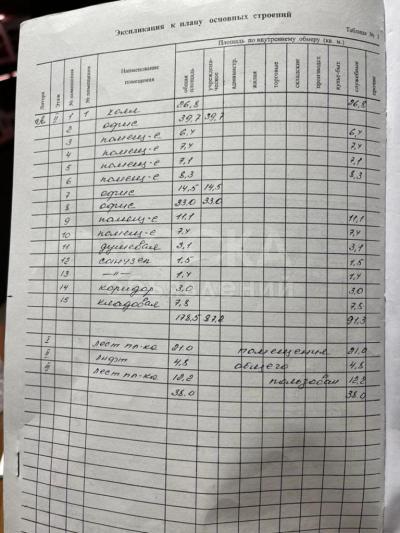 Экспликация к плану основных строений
Таблица № 1
Площадь по внутреннему обмеру (кв. м.)
Литера Этаж № помещения № помещения Наименование помещения общая площадь учрежденческое администр. жилая торговые складские производст. культ-быт. служебные прочие
II 1 1 холл 26,8 26,8
2 офис 39,7 39,7
3 помещ-е 6,4 6,4
4 помещ-е 7,4 7,4
5 помещ-е 7,1 7,1
6 помещ-е 8,3 8,3
7 офис 14,5 14,5
8 офис 33,0 33,0
9 помещ-е 11,1 11,1
10 помещ-е 7,4 7,4
11 душевая 3,1 3,1
12 санузел 1,5 1,5
13 —"— 1,4 1,4
14 коридор 3,0 3,0
15 кладовая 7,8 7,8
178,5 87,2 91,3
I лест пл-ка 21,0 помещения 21,0
II лифт 4,8 общего 4,8
лест пл-ка 12,2 пользован 12,2
38,0 38,0